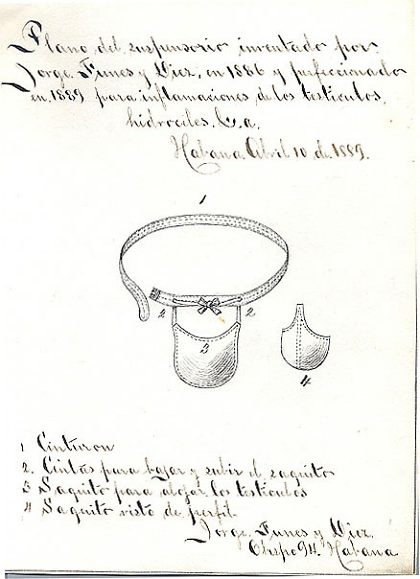 Plano del suspensorio inventado por
Jorge Funes y Diez, en 1886 y perfeccionado
en 1889 para inflamaciones de los testiculos,
hidroceles. &a.
Habana Abril 10 de 1889.
1
2 2
3
4
1 Cinturon
2. Cintas para bajar y subir el saquito
3 Saquito para alojar los testiculos
4 Saquito visto de perfil
Jorge Funes y Diez
Obispo 94. Habana